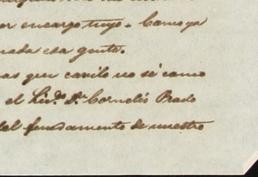 por encargo tuyo. Como ya
nada esa gente.
as que cavilo no sé como
el Lic.do Dr Cornelio Prado
del fundamento de nuestro